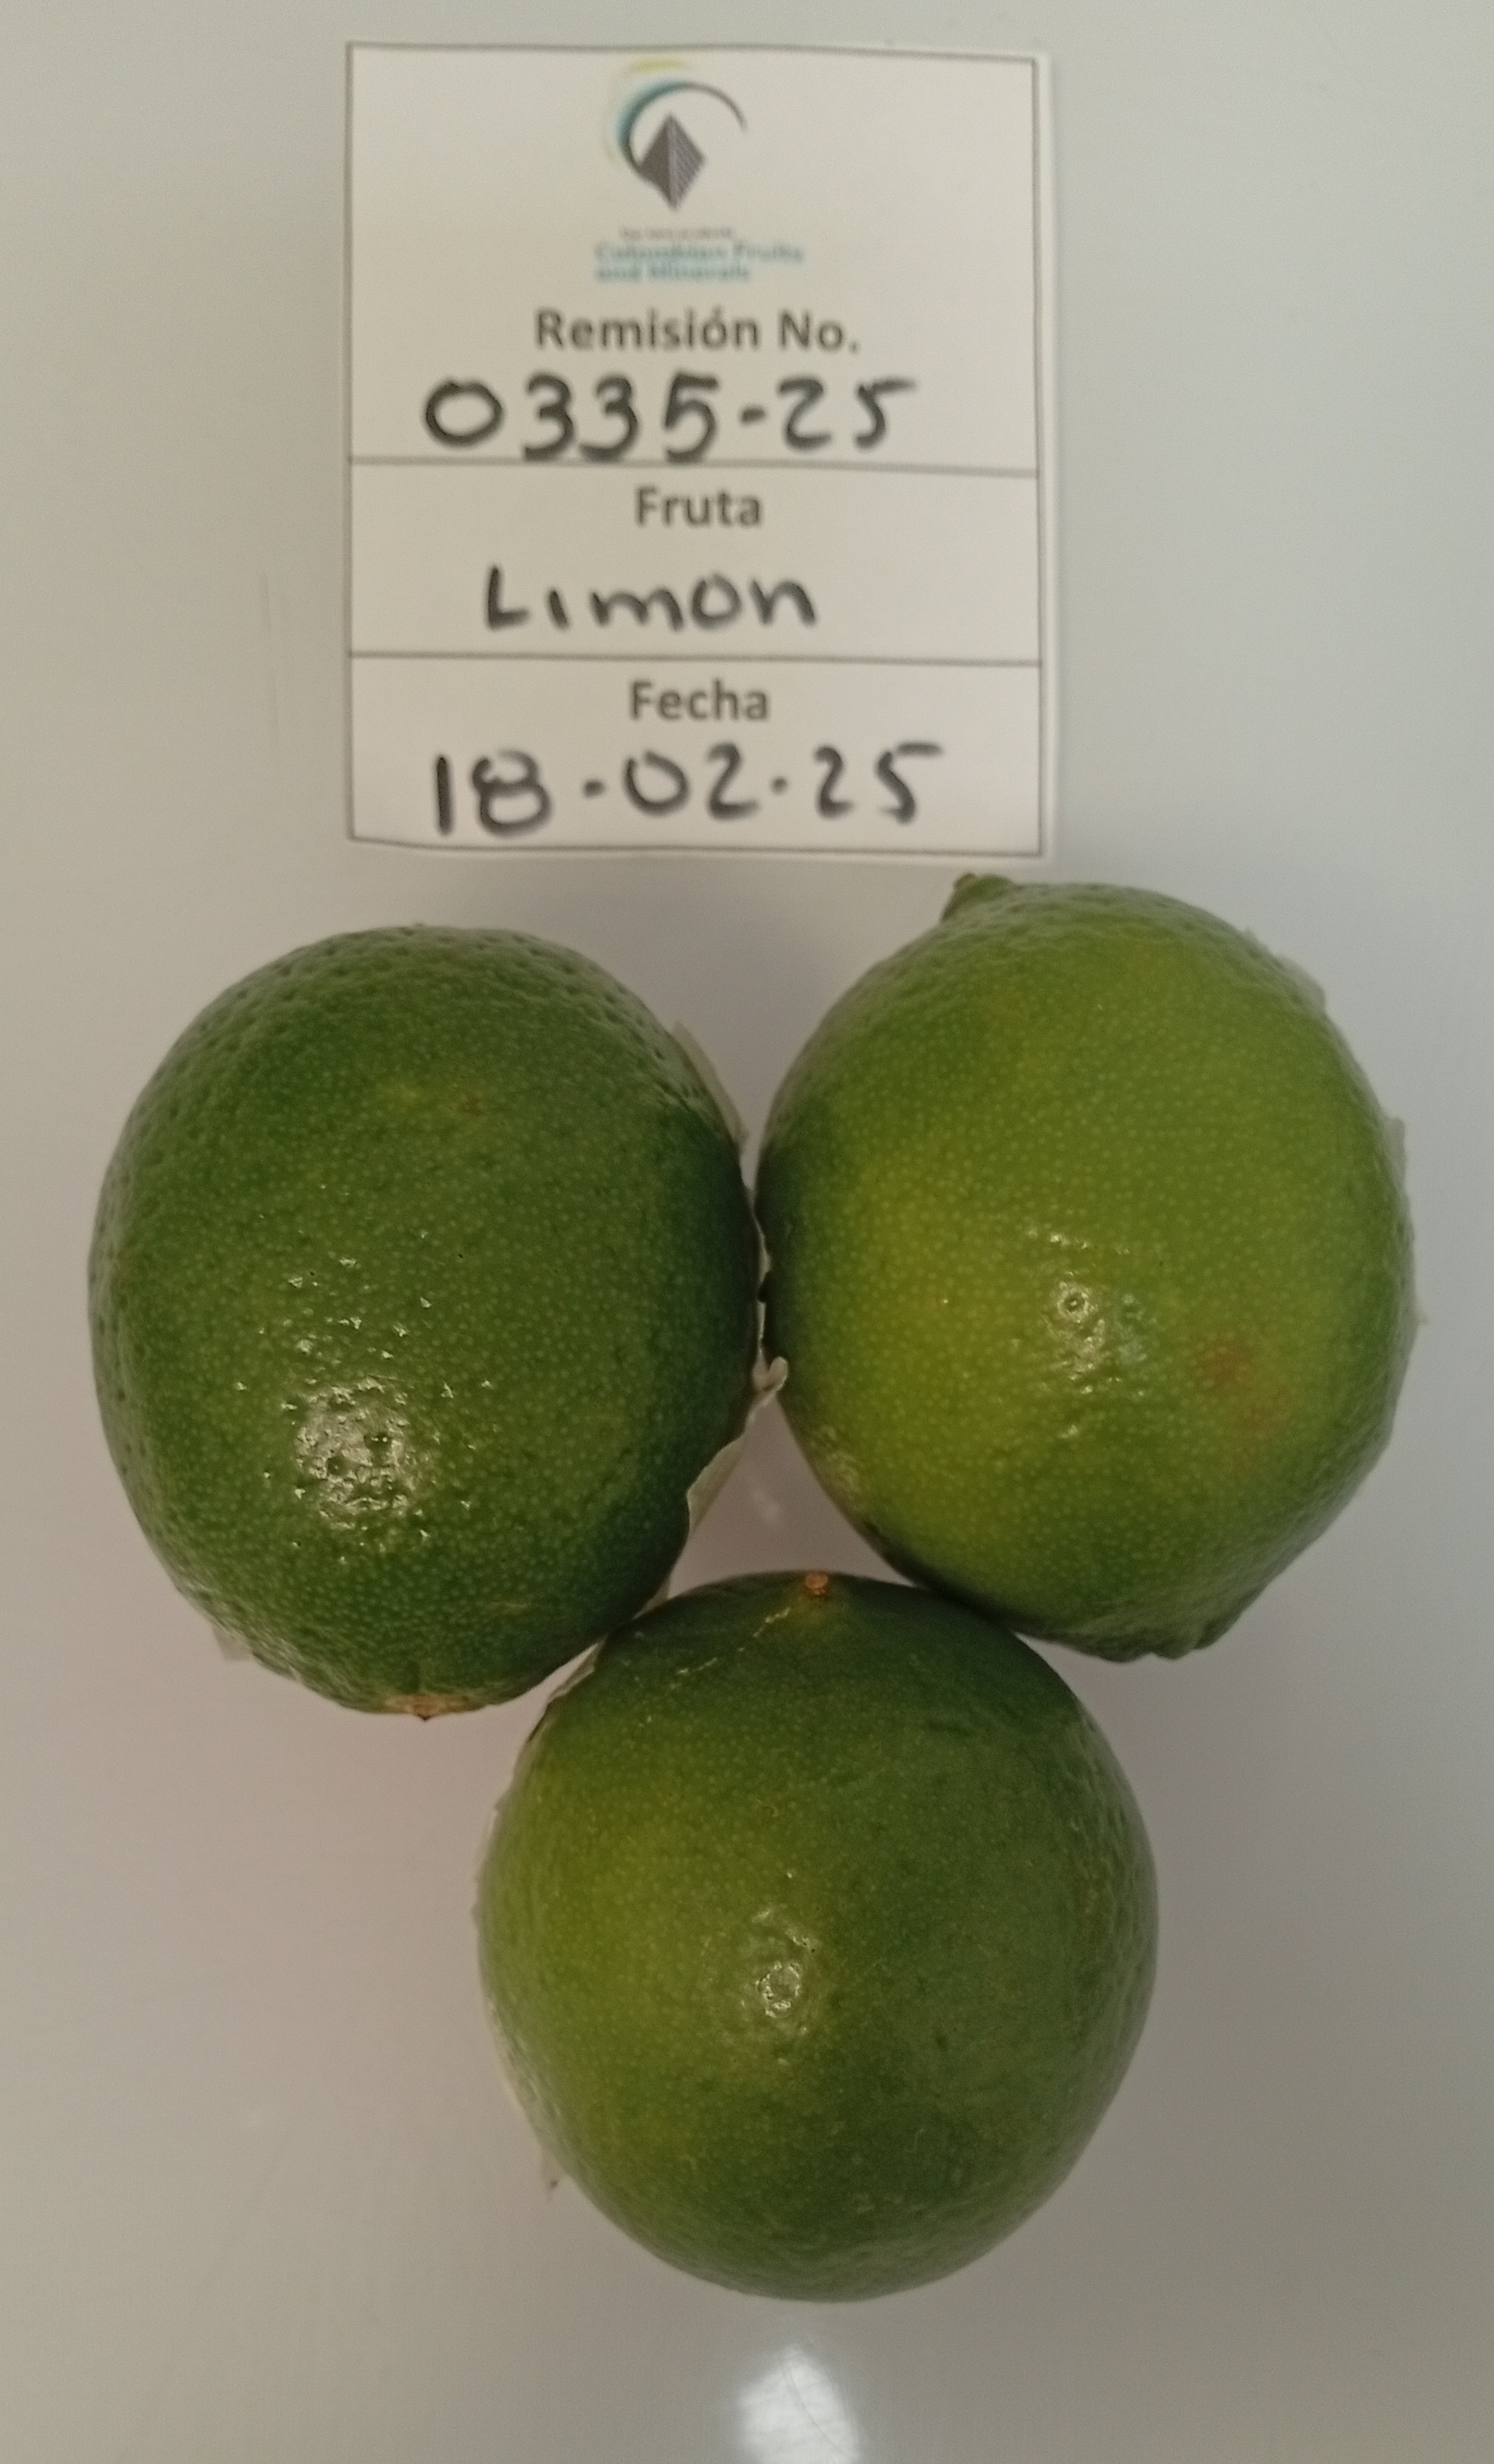 Colombian Fruits
and Minerals
Remisión No.
0335-25
Fruta
Limon
Fecha
18-02-25